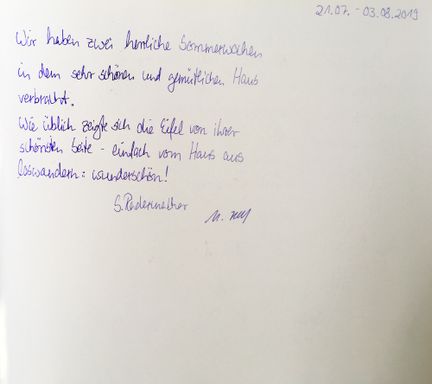 21.07. - 03.08.2019
Wir haben zwei herrliche Sommerwochen
in dem sehr schönen und gemütlichen Haus
verbracht.
Wie üblich zeigte sich die Eifel von ihrer
schönsten Seite - einfach vom Haus aus
loswandern: wunderschön!
S.